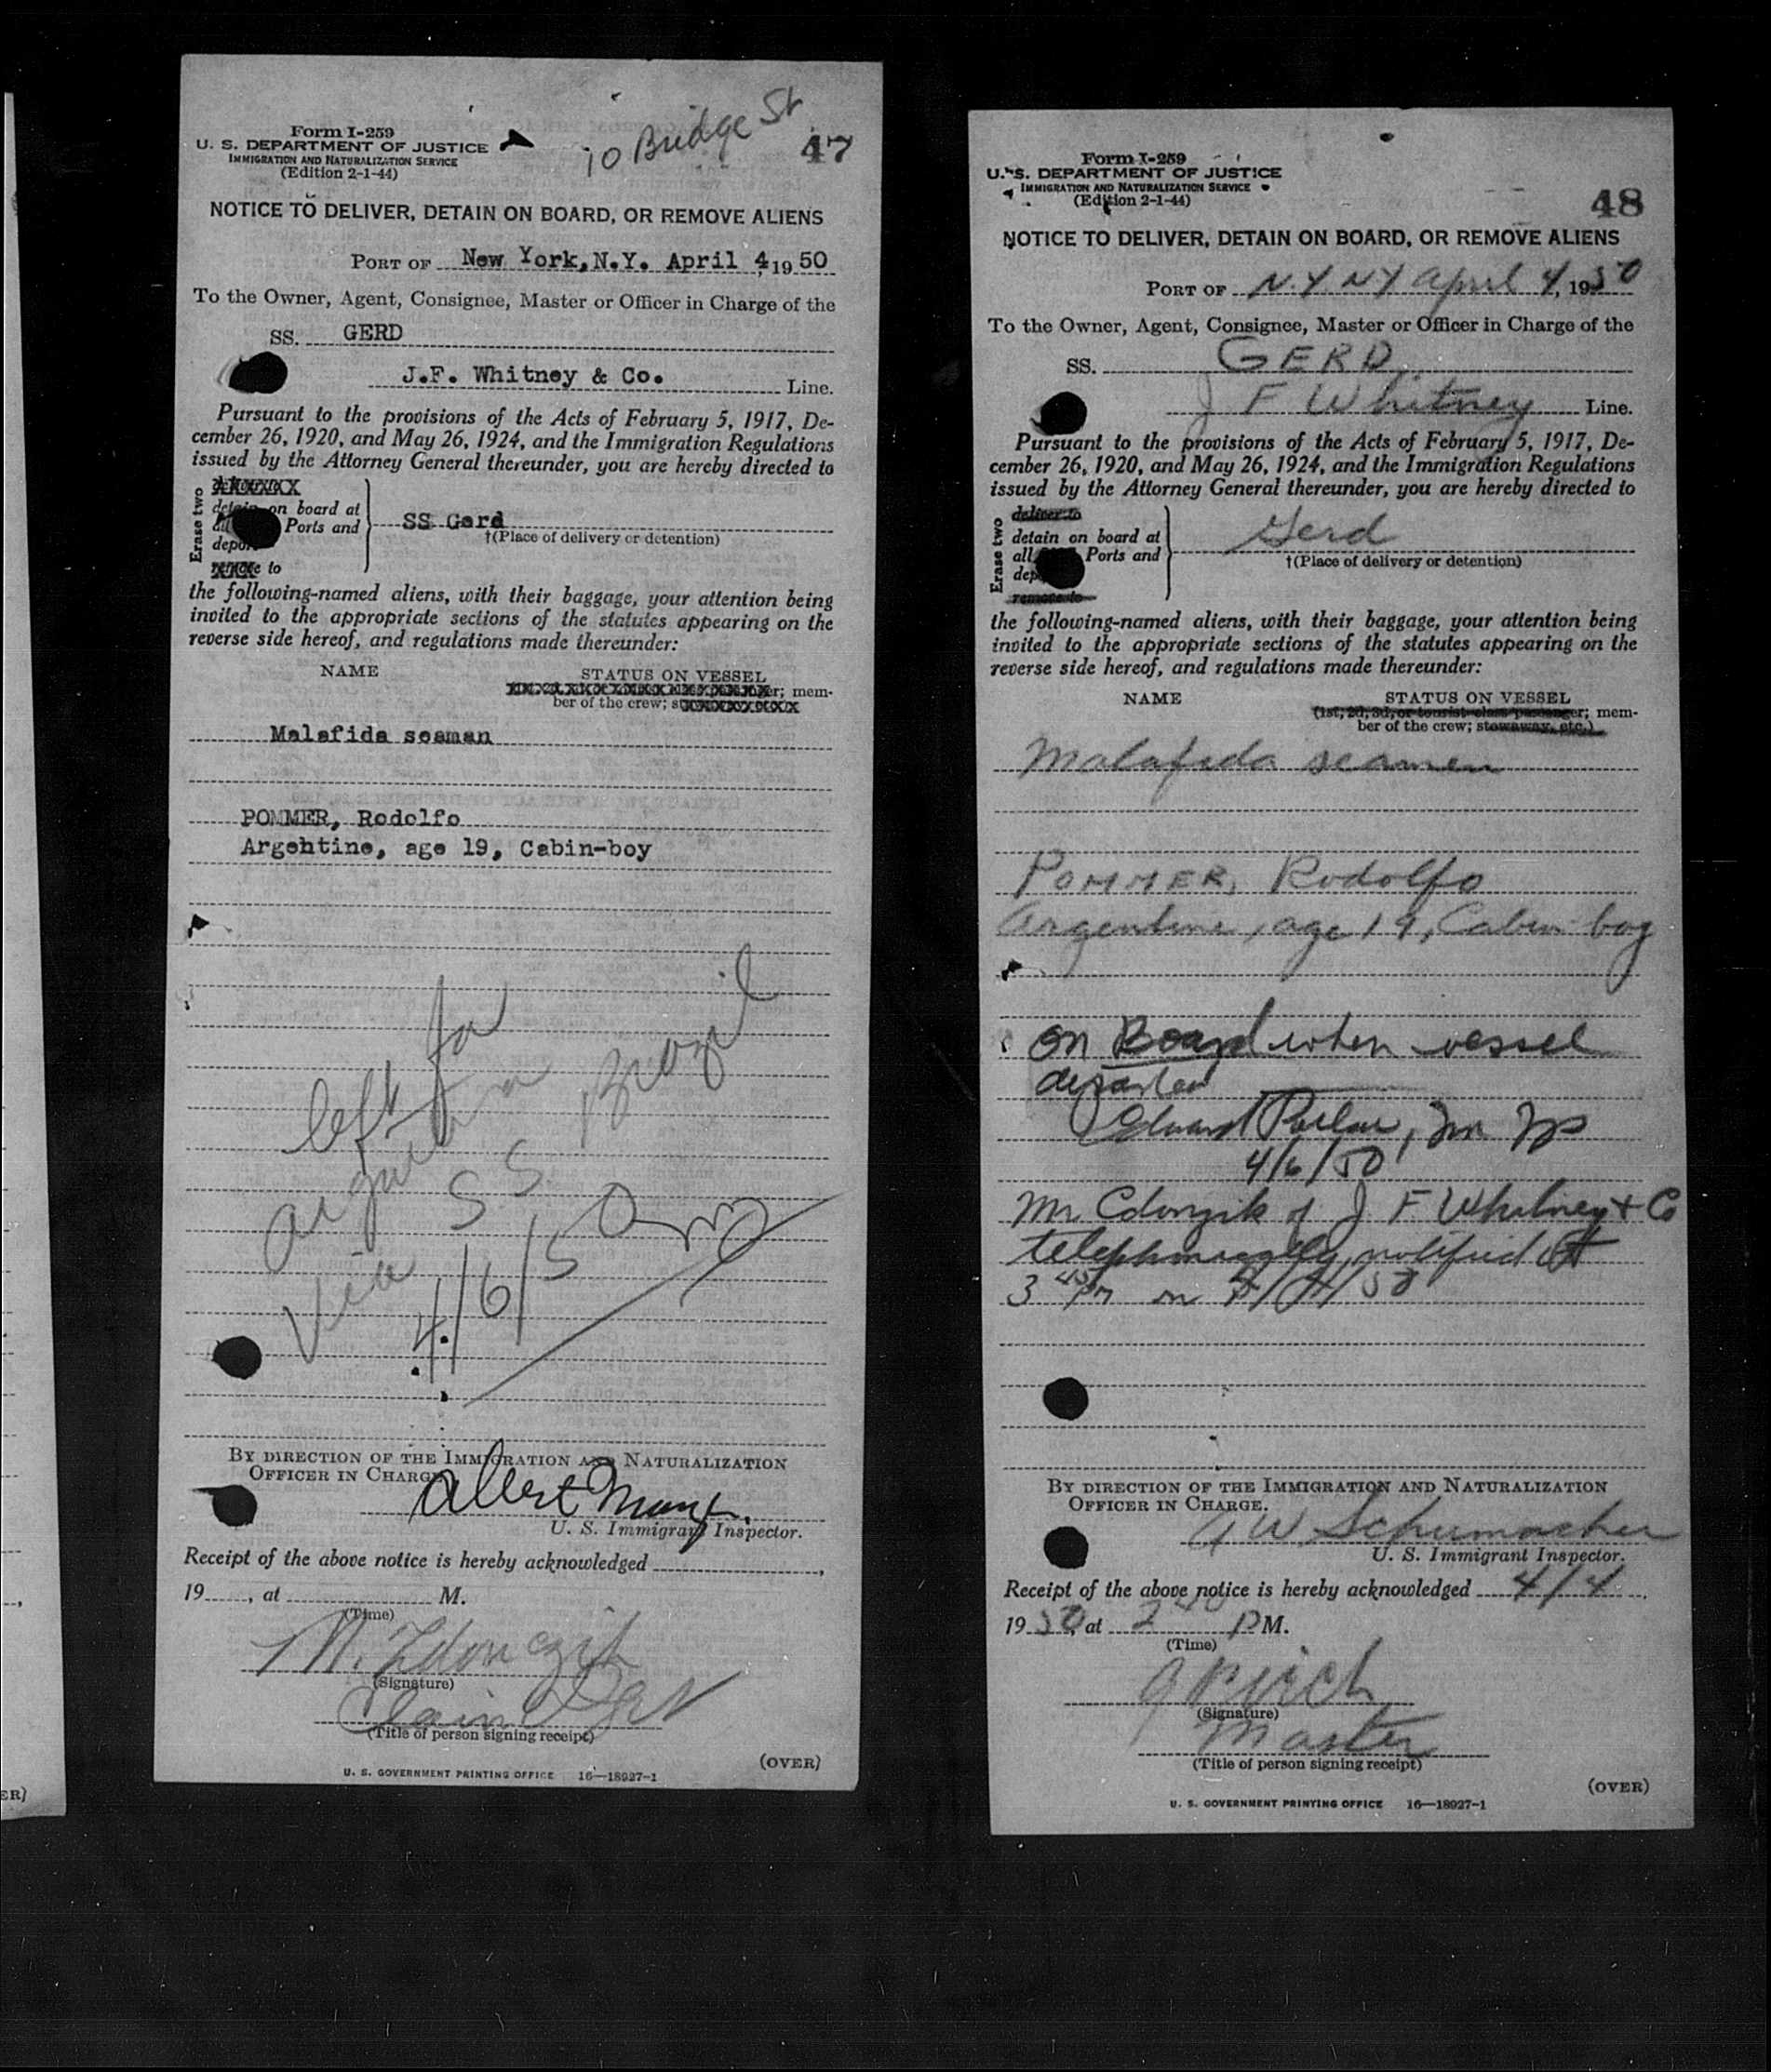 10 Bridge St
Form I-259
U. S. DEPARTMENT OF JUSTICE
IMMIGRATION AND NATURALIZATION SERVICE
(Edition 2-1-44)
47
NOTICE TO DELIVER, DETAIN ON BOARD, OR REMOVE ALIENS
PORT OF New York, N.Y. April 4, 19 50
To the Owner, Agent, Consignee, Master or Officer in Charge of the
SS. GERD
J.F. Whitney & Co. Line.
Pursuant to the provisions of the Acts of February 5, 1917, De-
cember 26, 1920, and May 26, 1924, and the Immigration Regulations
issued by the Attorney General thereunder, you are hereby directed to
Erase two
detain on board at
Ports and
SS Gerd
†(Place of delivery or detention)
to
the following-named aliens, with their baggage, your attention being
invited to the appropriate sections of the statutes appearing on the
reverse side hereof, and regulations made thereunder:
NAME STATUS ON VESSEL
mem-
ber of the crew;
Malafida seaman
POMMER, Rodolfo
Argentine, age 19, Cabin-boy
left for
Argentina
via SS Brazil
4/6/50
BY DIRECTION OF THE IMMIGRATION AND NATURALIZATION
OFFICER IN CHARGE.
Albert
U. S. Immigrant Inspector.
Receipt of the above notice is hereby acknowledged
19 , at M.
(Time)
M. Zdonczik
(Signature)
Claim Agt
(Title of person signing receipt)
(OVER)
U. S. GOVERNMENT PRINTING OFFICE 16—18927-1
ER)
Form I-259
U. S. DEPARTMENT OF JUSTICE
IMMIGRATION AND NATURALIZATION SERVICE
(Edition 2-1-44)
48
NOTICE TO DELIVER, DETAIN ON BOARD, OR REMOVE ALIENS
PORT OF N.Y. NY April 4, 1950
To the Owner, Agent, Consignee, Master or Officer in Charge of the
SS. GERD
J F Whitney Line.
Pursuant to the provisions of the Acts of February 5, 1917, De-
cember 26, 1920, and May 26, 1924, and the Immigration Regulations
issued by the Attorney General thereunder, you are hereby directed to
Erase two
deliver to
detain on board at
all Ports and
Gerd
†(Place of delivery or detention)
remove to
the following-named aliens, with their baggage, your attention being
invited to the appropriate sections of the statutes appearing on the
reverse side hereof, and regulations made thereunder:
NAME STATUS ON VESSEL
(1st, 2d, 3d, or tourist class passenger; mem-
ber of the crew; stowaway, etc.)
Malafida seamen
POMMER, Rodolfo
Argentine, age 19, Cabin boy
on Board when vessel
departed
Edward
4/6/50
Mr of J F Whitney & Co
telephonically notified at
3 45 PM on 4/4/50
BY DIRECTION OF THE IMMIGRATION AND NATURALIZATION
OFFICER IN CHARGE.
W Schumacher
U. S. Immigrant Inspector.
Receipt of the above notice is hereby acknowledged 4/4
1950, at 2 40 P M.
(Time)
(Signature)
Master
(Title of person signing receipt)
(OVER)
U. S. GOVERNMENT PRINTING OFFICE 16—18927-1